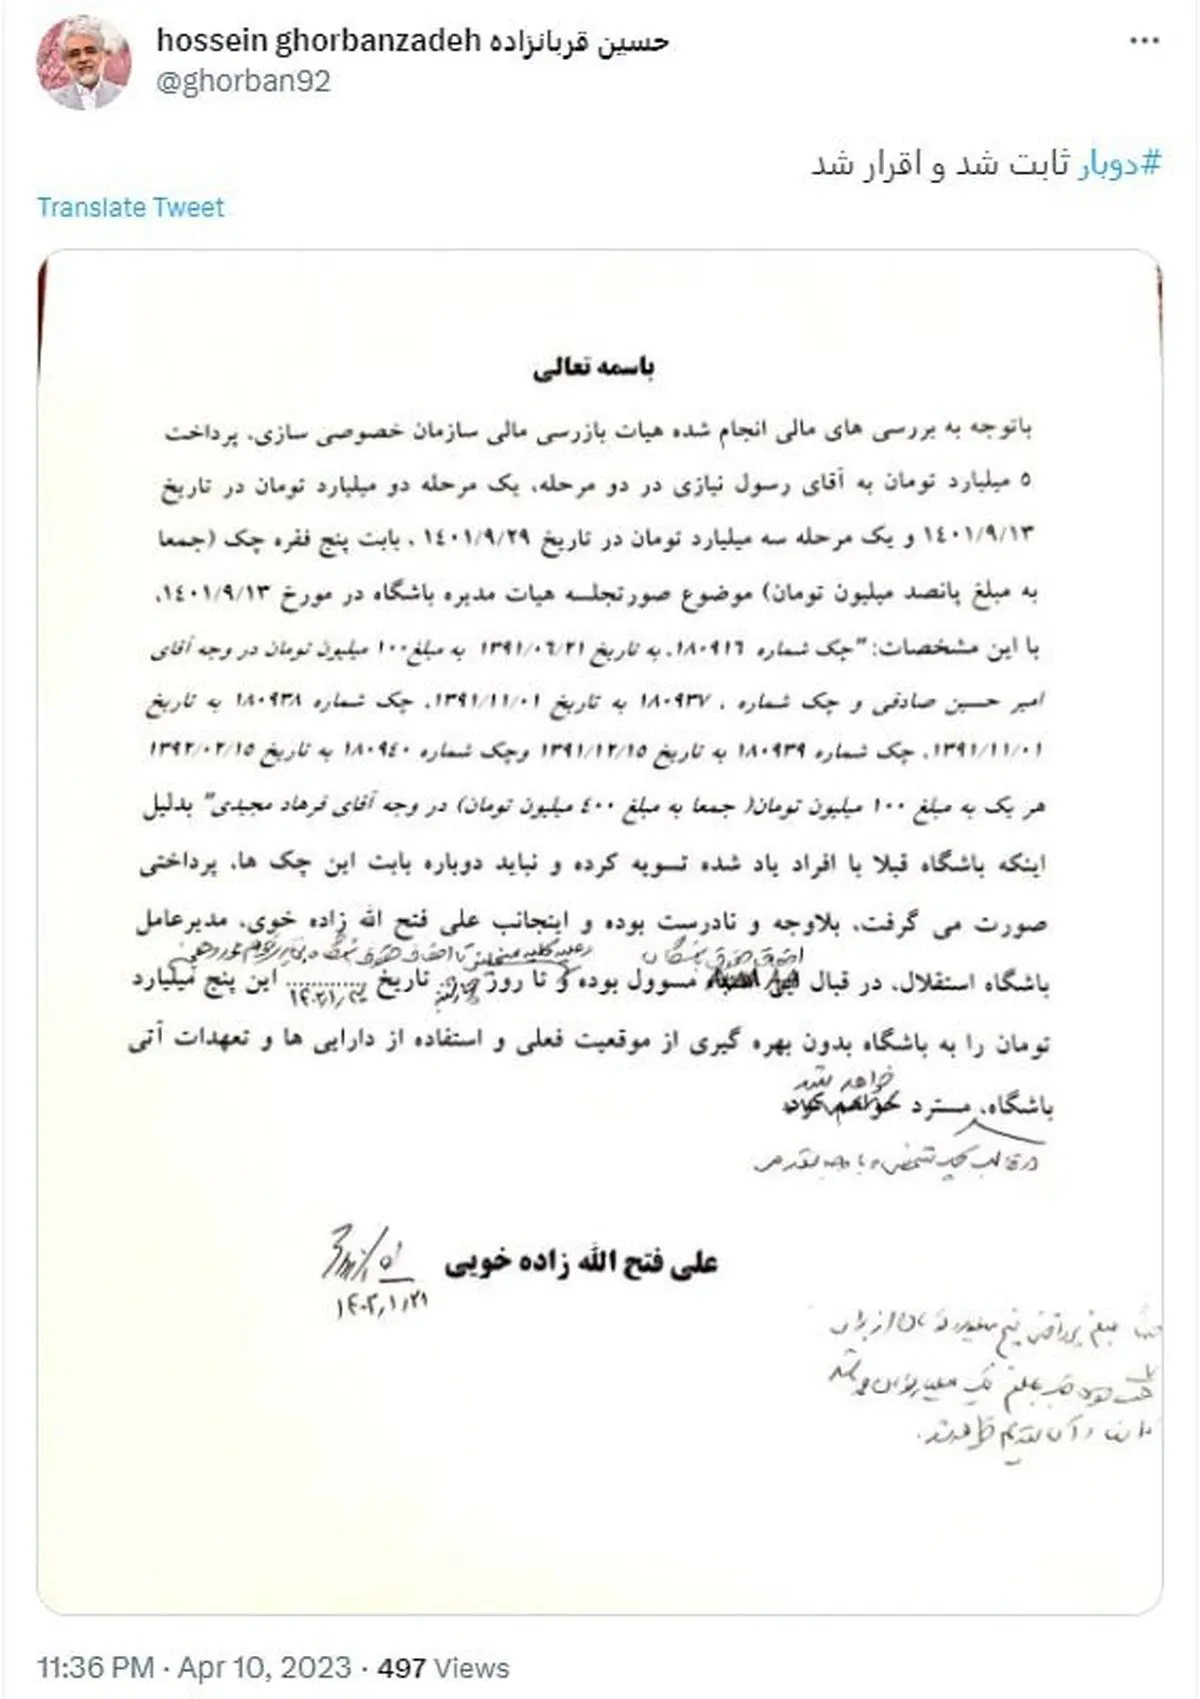 hossein ghorbanzadeh حسین قربانزاده
@ghorban92
#دوبار ثابت شد و اقرار شد
Translate Tweet
باسمه تعالی
باتوجه به بررسی های مالی انجام شده هیات بازرسی مالی سازمان خصوصی سازی، پرداخت
۵ میلیارد تومان به آقای رسول نیازی در دو مرحله، یک مرحله دو میلیارد تومان در تاریخ
۱٤۰۱/۹/۱۳ و یک مرحله سه میلیارد تومان در تاریخ ۱٤۰۱/۹/۲۹ ، بابت پنج فقره چک (جمعا
به مبلغ پانصد میلیون تومان) موضوع صورتجلسه هیات مدیره باشگاه در مورخ ۱٤۰۱/۹/۱۳،
با این مشخصات: "چک شماره ۱۸۰۹۱٦، به تاریخ ۱۳۹۱/۰٦/۲۱ به مبلغ۱۰۰ میلیون تومان در وجه آقای
امیر حسین صادقی و چک شماره ، ۱۸۰۹۳۷ به تاریخ ۱۳۹۱/۱۱/۰۱، چک شماره ۱۸۰۹۳۸ به تاریخ
۱۳۹۱/۱۱/۰۱، چک شماره ۱۸۰۹۳۹ به تاریخ ۱۳۹۱/۱۲/۱۵ وچک شماره ۱۸۰۹٤۰ به تاریخ ۱۳۹۲/۰۲/۱۵
هر یک به مبلغ ۱۰۰ میلیون تومان( جمعا به مبلغ ٤۰۰ میلیون تومان) در وجه آقای فرهاد مجیدی" بدلیل
اینکه باشگاه قبلا با افراد یاد شده تسویه کرده و نباید دوباره بابت این چک ها، پرداختی
صورت می گرفت، بلاوجه و نادرست بوده و اینجانب علی فتح الله زاده خوی، مدیرعامل
احقاق حقوق باشگاه
باشگاه استقلال، در قبال مسوول بوده و تا روز تاریخ این پنج میلیارد
تومان را به باشگاه بدون بهره گیری از موقعیت فعلی و استفاده از دارایی ها و تعهدات آتی
خواهد شد
باشگاه، مسترد
علی فتح الله زاده خویی
۱۴۰۲/۱/۲۱
11:36 PM · Apr 10, 2023 · 497 Views